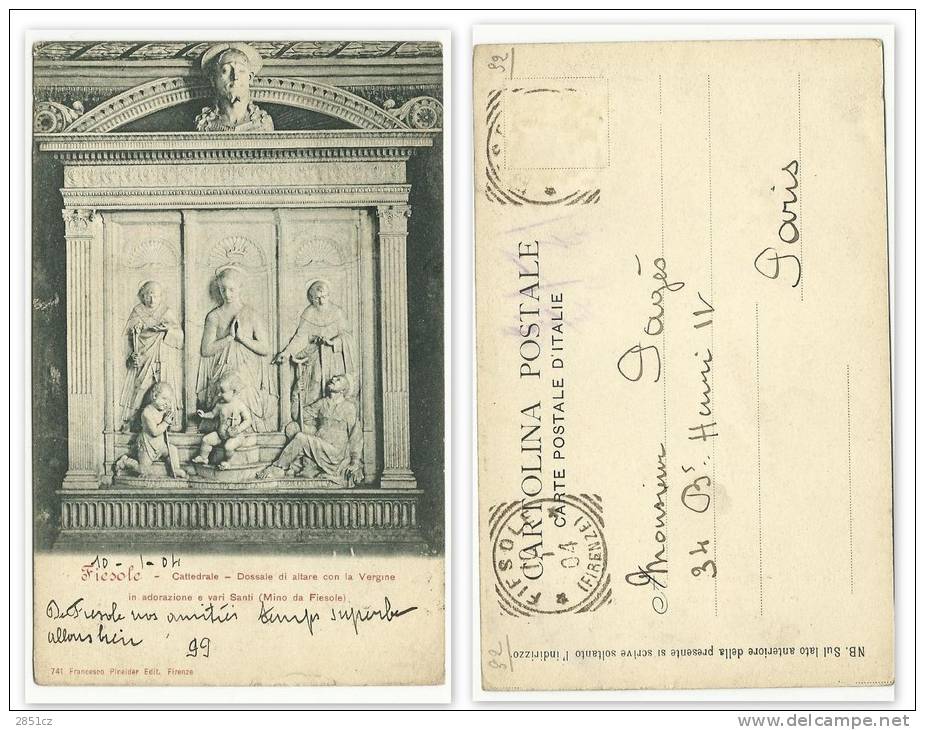 10 - 1 - 04
Fiesole - Cattedrale - Dossale di altare con la Vergine
in adorazione e vari Santi (Mino da Fiesole)
De Fiesole nos amitiés temps superbe
allons bien
99
741 Francesco Pineider Edit. Firenze
92
CARTOLINA POSTALE
CARTE POSTALE D'ITALIE
FIESOLE
1
04
(FIRENZE)
Monsieur Pagès
34 Bd. Henri IV
Paris
92
NB. Sul lato anteriore della presente si scrive soltanto l'indirizzo.
2851cz
www.delcampe.net